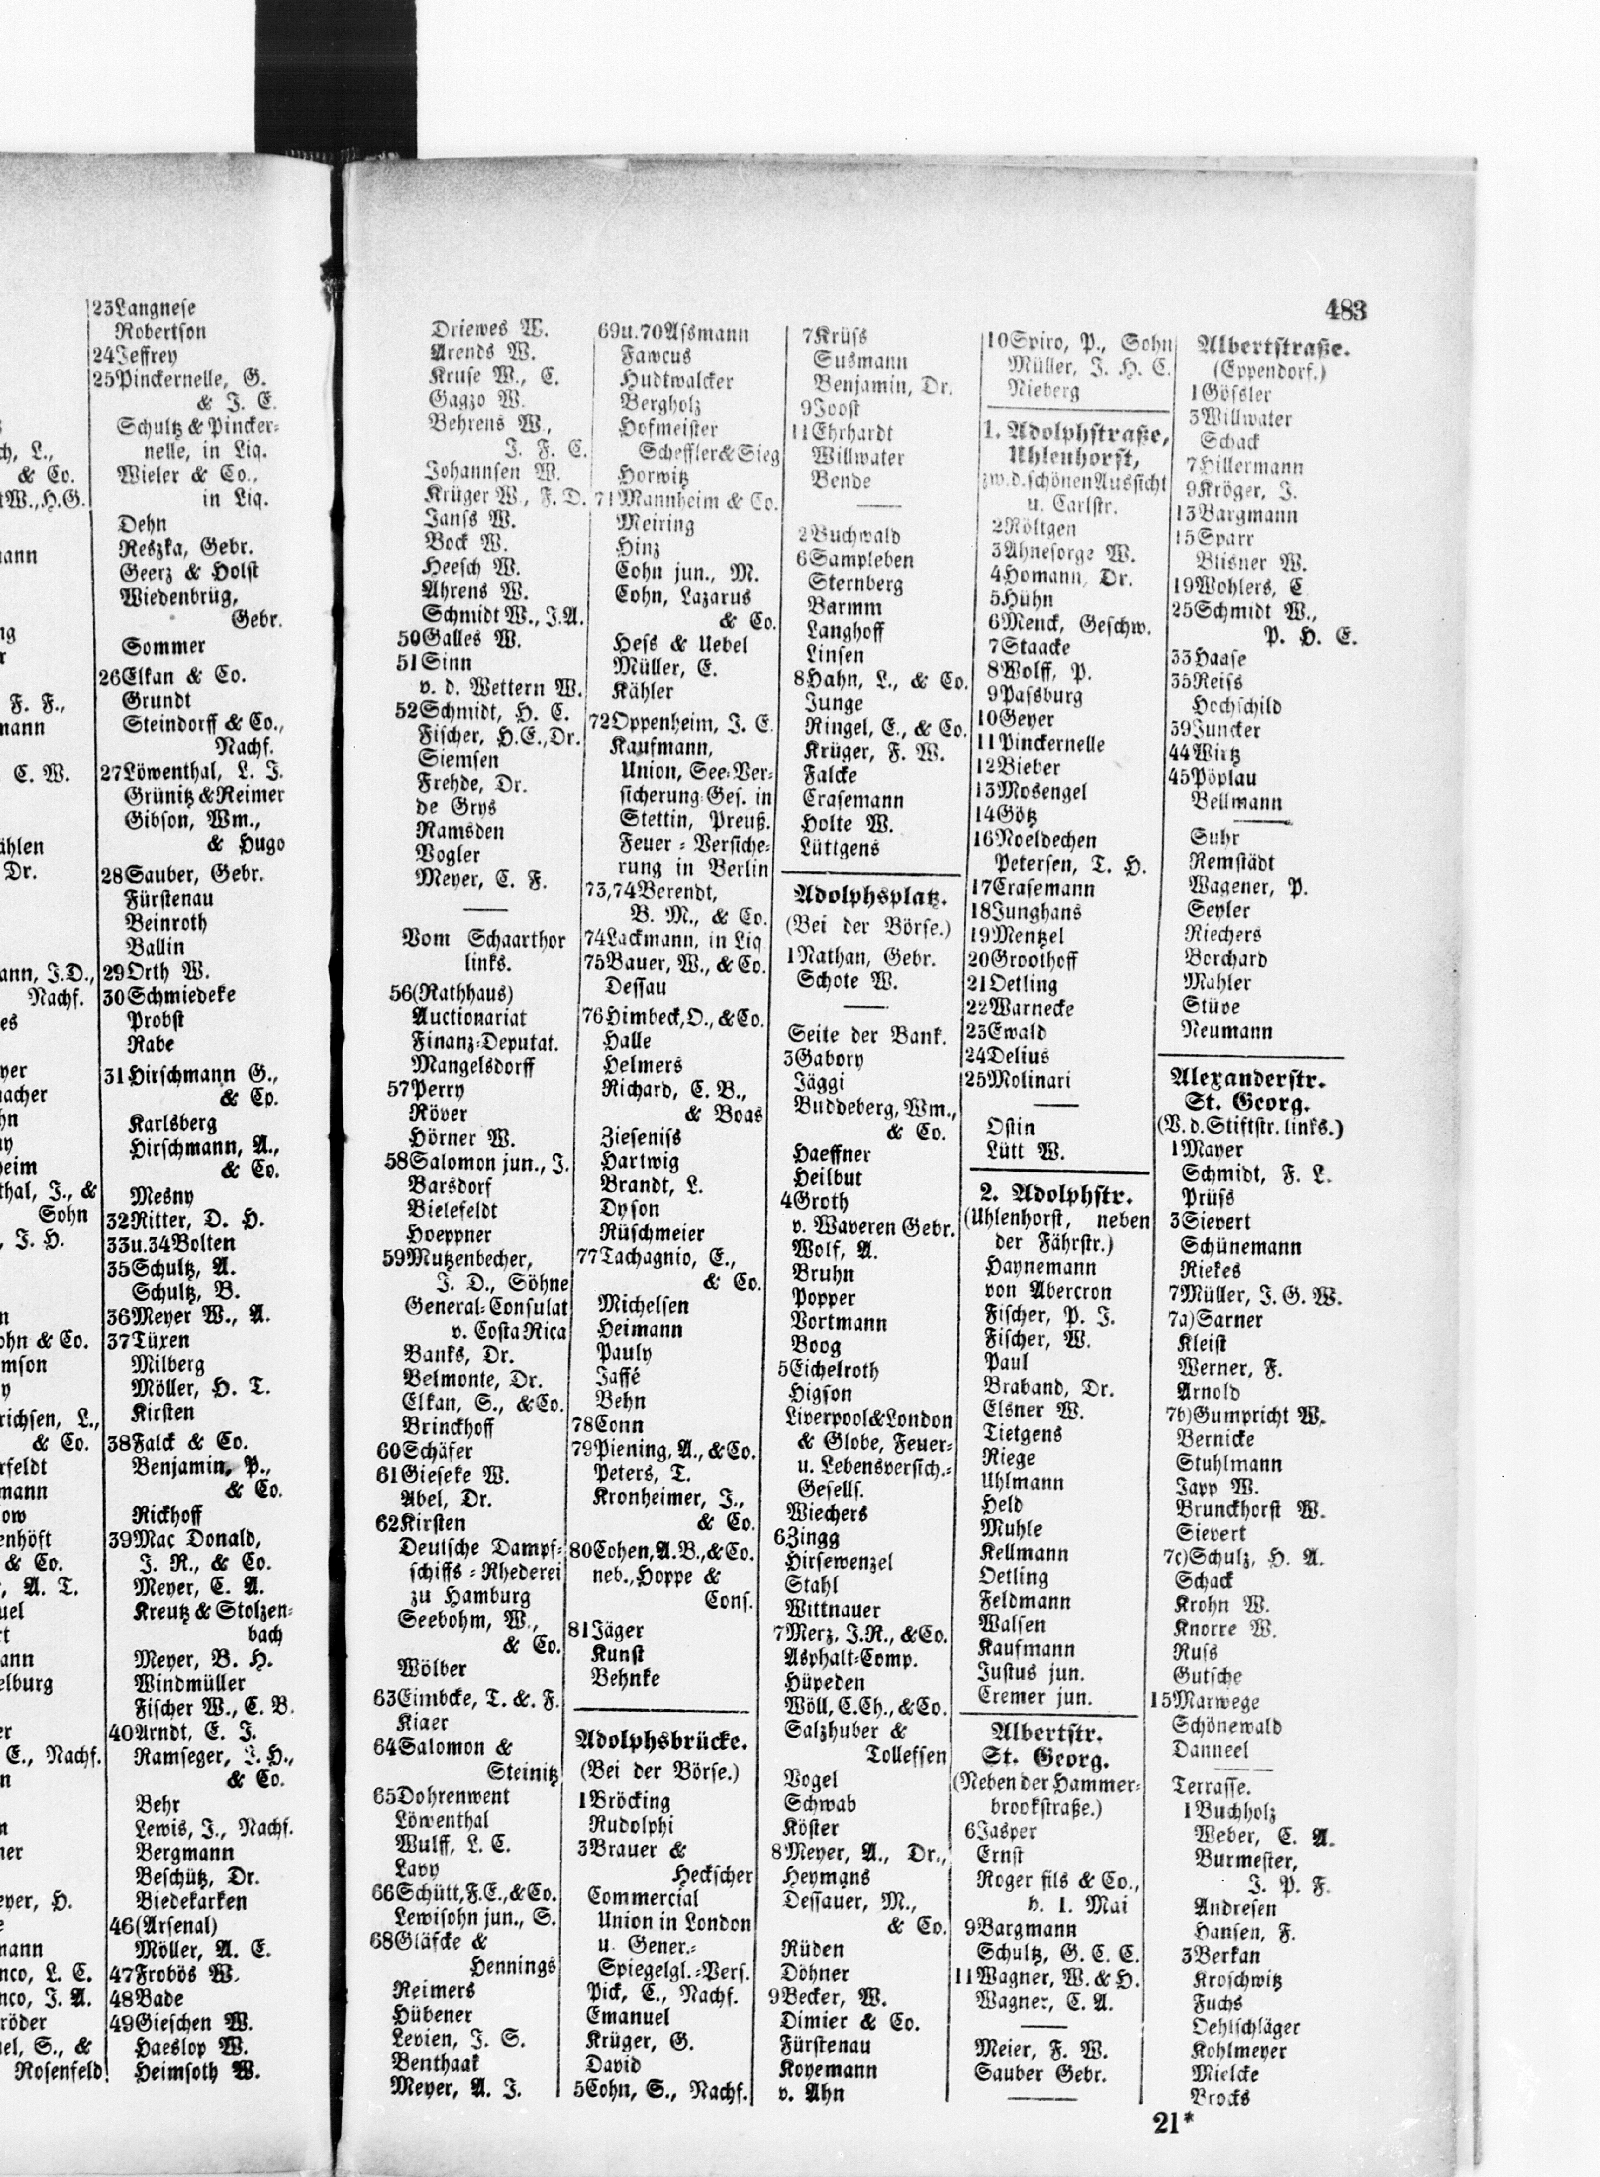 ch, L.,
& Co.
tW., H.G.
mann
ng
r
F. F.,
mann
C. W.
ählen
Dr.
ann, J.D.,
Nachf.
es
yer
nacher
hn
ny
heim
thal, J., &
Sohn
, J. H.
n
ohn & Co.
mson
y
richsen, L.,
& Co.
rfeldt
mann
ow
enhöft
& Co.
, A. T.
uel
rt
ann
elburg
er
E., Nachf.
n
n
ner
eyer, H.
e
mann
nco, L. C.
nco, J. A.
röder
uel, S., &
Rosenfeld
23Langnese
Robertson
24Jeffrey
25Pinckernelle, G.
& J. E.
Schultz & Pincker-
nelle, in Liq.
Wieler & Co.,
in Liq.
Dehn
Reszka, Gebr.
Geerz & Holst
Wiedenbrüg,
Gebr.
Sommer
26Elkan & Co.
Grundt
Steindorff & Co.,
Nachf.
27Löwenthal, L. J.
Grünitz & Reimer
Gibson, Wm.,
& Hugo
28Sauber, Gebr.
Fürstenau
Beinroth
Ballin
29Orth W.
30Schmiedeke
Probst
Rabe
31Hirschmann G.,
& Co.
Karlsberg
Hirschmann, A.,
& Co.
Mesny
32Ritter, D. H.
33u.34Bolten
35Schultz, A.
Schultz, B.
36Meyer W., A.
37Tüxen
Milberg
Möller, H. T.
Kirsten
38Falck & Co.
Benjamin, P.,
& Co.
Rickhoff
39Mac Donald,
J. R., & Co.
Meyer, C. A.
Kreutz & Stolzen-
bach
Meyer, B. H.
Windmüller
Fischer W., C. B.
40Arndt, E. J.
Ramseger, J. H.,
& Co.
Behr
Lewis, J., Nachf.
Bergmann
Beschütz, Dr.
Biedekarken
46(Arsenal)
Möller, A. E.
47Frobös W.
48Bade
49Gieschen W.
Haeslop W.
Heimsoth W.
483
Driewes W.
Arends W.
Kruse W., C.
Gagzo W.
Behrens W.,
J. F. C.
Johannsen W.
Krüger W., F. D.
Janss W.
Bock W.
Heesch W.
Ahrens W.
Schmidt W., J.A.
50Galles W.
51Sinn
v. d. Wettern W.
52Schmidt, H. C.
Fischer, H.E., Dr.
Siemsen
Frehde, Dr.
de Grys
Ramsden
Vogler
Meyer, C. F.
Vom Schaarthor
links.
56(Rathhaus)
Auctionariat
Finanz-Deputat.
Mangelsdorff
57Perry
Röver
Hörner W.
58Salomon jun., J.
Barsdorf
Bielefeldt
Hoeppner
59Mutzenbecher,
J. D., Söhne
General-Consulat
v. Costa Rica
Banks, Dr.
Belmonte, Dr.
Elkan, S., & Co.
Brinckhoff
60Schäfer
61Gieseke W.
Abel, Dr.
62Kirsten
Deutsche Dampf-
schiffs-Rhederei
zu Hamburg
Seebohm, W.,
& Co.
Wölber
63Eimbcke, T. & F.
Kiaer
64Salomon &
Steinitz
65Dohrenwent
Löwenthal
Wulff, L. E.
Lavy
66Schütt, F.E., & Co.
Lewisohn jun., S.
68Gläfcke &
Hennings
Reimers
Hübener
Levien, J. S.
Benthaak
Meyer, A. J.
69u.70Assmann
Fawcus
Hudtwalcker
Bergholz
Hofmeister
Scheffler & Sieg
Horwitz
71Mannheim & Co.
Meiring
Hinz
Cohn jun., M.
Cohn, Lazarus
& Co.
Hess & Uebel
Müller, E.
Kähler
72Oppenheim, J. E.
Kaufmann,
Union, See-Ver-
sicherung-Ges. in
Stettin, Preuß.
Feuer-Versiche-
rung in Berlin
73,74Berendt,
B. M., & Co.
74Lackmann, in Liq.
75Bauer, W., & Co.
Dessau
76Himbeck, O., & Co.
Halle
Helmers
Richard, C. B.,
& Boas
Zieseniss
Hartwig
Brandt, L.
Dyson
Rüschmeier
77Tachagnio, E.,
& Co.
Michelsen
Heimann
Pauly
Jaffé
Behn
78Conn
79Piening, A., & Co.
Peters, T.
Kronheimer, J.,
& Co.
80Cohen, A.B., & Co.
neb., Hoppe &
Cons.
81Jäger
Kunst
Behnke
Adolphsbrücke.
(Bei der Börse.)
1Bröcking
Rudolphi
3Brauer &
Heckscher
Commercial
Union in London
u. Gener.-
Spiegelgl.-Vers.
Pick, E., Nachf.
Emanuel
Krüger, G.
David
5Cohn, S., Nachf.
7Krüss
Susmann
Benjamin, Dr.
9Joost
11Ehrhardt
Willwater
Bende
2Buchwald
6Sampleben
Sternberg
Barmm
Langhoff
Linsen
8Hahn, L., & Co.
Junge
Ringel, E., & Co.
Krüger, F. W.
Falcke
Crasemann
Holte W.
Lüttgens
Adolphsplatz.
(Bei der Börse.)
1Nathan, Gebr.
Schote W.
Seite der Bank.
3Gabory
Jäggi
Buddeberg, Wm.,
& Co.
Haeffner
Heilbut
4Groth
v. Waveren Gebr.
Wolf, A.
Bruhn
Popper
Vortmann
Boog
5Eichelroth
Higson
Liverpool & London
& Globe, Feuer-
u. Lebensversich.-
Gesells.
Wiechers
6Zingg
Hirsewenzel
Stahl
Wittnauer
7Merz, J.R., & Co.
Asphalt-Comp.
Hüpeden
Wöll, C.Ch., & Co.
Salzhuber &
Tollefsen
Vogel
Schwab
Köster
8Meyer, A., Dr.,
Heymans
Dessauer, M.,
& Co.
Rüden
Döhner
9Becker, W.
Dimier & Co.
Fürstenau
Koyemann
v. Ahn
10Spiro, P., Sohn
Müller, J. H. C.
Nieberg
1. Adolphstraße,
Uhlenhorst,
zw. d. schönen Aussicht
u. Carlstr.
2Röltgen
3Ahnesorge W.
4Homann, Dr.
5Hühn
6Menck, Geschw.
7Staacke
8Wolff, P.
9Passburg
10Geyer
11Pinckernelle
12Bieber
13Mosengel
14Götz
16Noeldechen
Petersen, T. H.
17Crasemann
18Junghans
19Mentzel
20Groothoff
21Oetling
22Warnecke
23Ewald
24Delius
25Molinari
Ostin
Lütt W.
2. Adolphstr.
(Uhlenhorst, neben
der Fährstr.)
Haynemann
von Abercron
Fischer, P. J.
Fischer, W.
Paul
Braband, Dr.
Elsner W.
Tietgens
Riege
Uhlmann
Held
Muhle
Kellmann
Oetling
Feldmann
Walsen
Kaufmann
Justus jun.
Cremer jun.
Albertstr.
St. Georg.
(Neben der Hammer-
brookstraße.)
6Jasper
Ernst
Roger fils & Co.,
v. 1. Mai
9Bargmann
Schultz, G. C. C.
11Wagner, W. & H.
Wagner, C. A.
Meier, F. W.
Sauber Gebr.
Albertstraße.
(Eppendorf.)
1Gössler
3Willwater
Schack
7Hillermann
9Kröger, J.
13Bargmann
15Sparr
Blisner W.
19Wohlers, C.
25Schmidt W.,
P. H. E.
33Haase
35Reiss
Hochschild
39Juncker
44Wirtz
45Pöplau
Bellmann
Suhr
Remstädt
Wagener, P.
Seyler
Riechers
Borchard
Mahler
Stüve
Neumann
Alexanderstr.
St. Georg.
(V. d. Stiftstr. links.)
1Mayer
Schmidt, F. L.
Prüss
3Sievert
Schünemann
Riekes
7Müller, J. G. W.
7a)Sarner
Kleist
Werner, F.
Arnold
7b)Gumpricht W.
Bernicke
Stuhlmann
Japp W.
Brunckhorst W.
Sievert
7c)Schulz, H. A.
Schack
Krohn W.
Knorre W.
Russ
Gutsche
15Marwege
Schönewald
Danneel
Terrasse.
1Buchholz
Weber, C. A.
Burmester,
J. P. F.
Andresen
Hansen, F.
3Berkan
Kroschwitz
Fuchs
Oehlschläger
Kohlmeyer
Mielcke
Brocks
21*